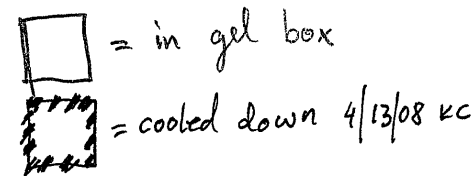 = in gel box
= cooled down 4/13/08 KC